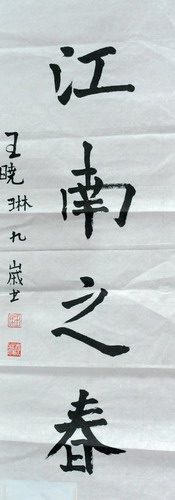 江南之春
王晓琳九岁书